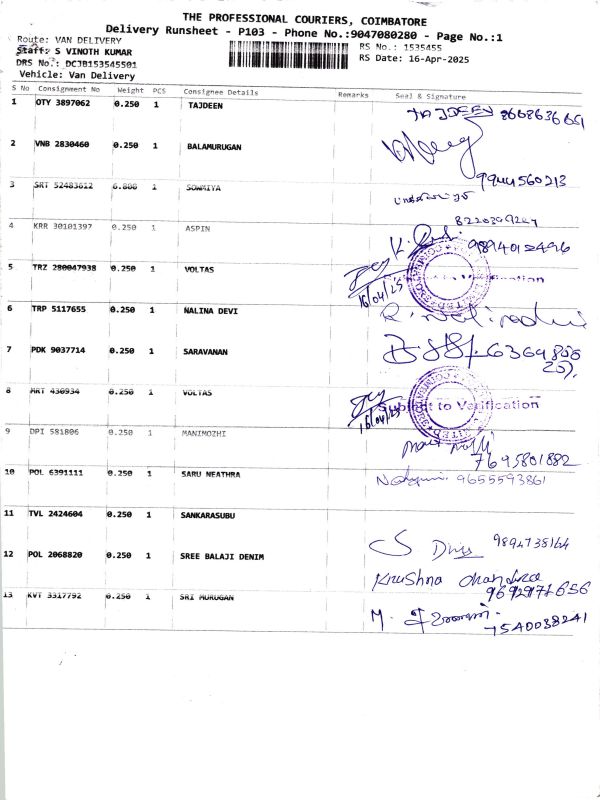 THE PROFESSIONAL COURIERS, COIMBATORE
Delivery Runsheet - P103 - Phone No.:9047080280 - Page No.:1
Route: VAN DELIVERY
Staff: S VINOTH KUMAR
RS No.: 1535455
DRS No.: DCJB153545501
RS Date: 16-Apr-2025
Vehicle: Van Delivery
S No Consignment No Weight PCS Consignee Details Remarks Seal & Signature
1 OTY 3897062 0.250 1 TAJDEEN TAJDEEN
2 VNB 2830460 0.250 1 BALAMURUGAN
9944560213
3 SRT 52483612 6.800 1 SOWMIYA
4 KRR 30101397 0.250 1 ASPIN
5 TRZ 280047938 0.250 1 VOLTAS 16/04/25
6 TRP 5117655 0.250 1 NALINA DEVI
7 PDK 9037714 0.250 1 SARAVANAN
8 MRT 430934 0.250 1 VOLTAS
Subject to Verification
16/04/25
9 DPI 581806 0.250 1 MANIMOZHI
7695801882
10 POL 6391111 0.250 1 SARU NEATHRA 9655593861
11 TVL 2424604 0.250 1 SANKARASUBU
9894738164
12 POL 2068820 0.250 1 SREE BALAJI DENIM
Krushna
13 KVT 3317792 0.250 1 SRI MURUGAN M.